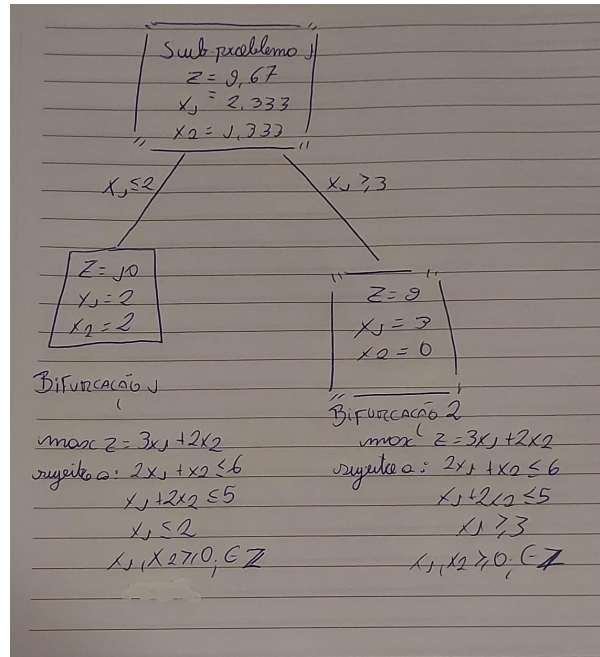 Sub problema 1
Z = 9,67
x1 = 2.333
x2 = 1,333
x1 ≤ 2
x1 ≥ 3
Z = 10
x1 = 2
x2 = 2
Z = 9
x1 = 3
x2 = 0
Bifurcação 1
max z = 3x1 + 2x2
sujeito a: 2x1 + x2 ≤ 6
x1 + 2x2 ≤ 5
x1 ≤ 2
x1, x2 ≥ 0; ∈ Z
Bifurcação 2
max z = 3x1 + 2x2
sujeito a: 2x1 + x2 ≤ 6
x1 + 2x2 ≤ 5
x1 ≥ 3
x1, x2 ≥ 0; ∈ Z